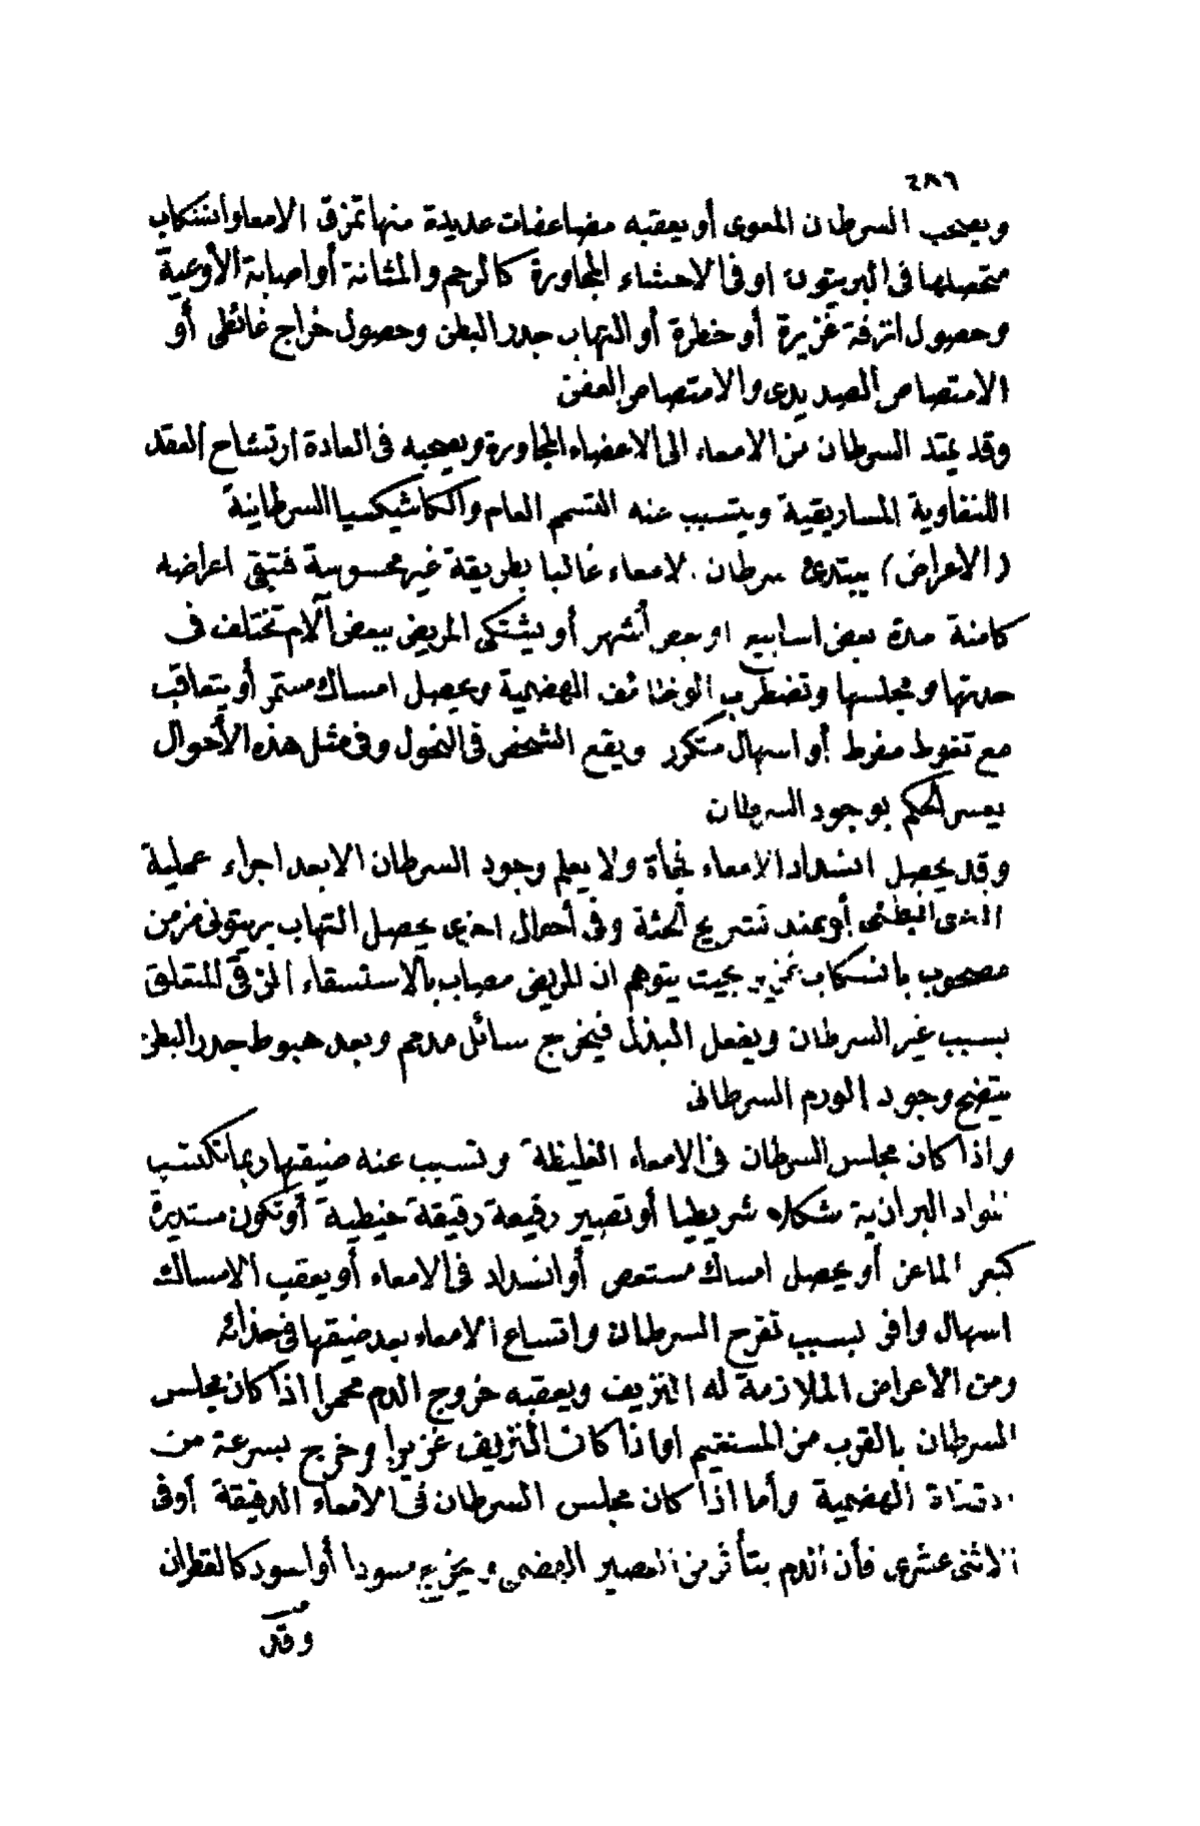 ٢٨٦
ويصحب السرطان المعوى أو يعقبه مضاعفات عديدة منها تمزق الامعا وانسكاب
متحصلها فى البريتون او فى الاحشاء المجاورة كالرحم والمثانة أو اصابة الأوعية
وحصول انزفة غزيرة أو خطرة أو التهاب جدر البطن وحصول خراج غائطى أو
الامتصاص الصديدى والامتصاص العفن
وقد يمتد السرطان من الامعاء الى الاعضاء المجاورة ويصحبه فى العادة ارتشاح العقد
اللنفاوية المساريقية ويتسبب عنه التسمم العام والكاشيكسيا السرطانية
(الاعراض) يبتدئ سرطان الامعاء غالبا بطريقة غير محسوسة فتبقى اعراضه
كامنة مدة بعض اسابيع او بعض أشهر أو يشتكى المريض ببعض آلام تختلف فى
حدتها ومجلسها وتضطرب الوظائف الهضمية ويحصل امساك مستمر أو يتعاقب
مع تغوط مفرط أو اسهال متكرر ويقع الشخص فى النحول وفى مثل هذه الأحوال
يعسر الحكم بوجود السرطان
وقد يحصل انسداد الامعاء فجأة ولا يعلم وجود السرطان الا بعد اجراء عملية
الشق البطنى أو عند تشريح الجثة وفى أحوال اخرى يحصل التهاب بريتونى مزمن
مصحوب بانسكاب غزير بحيث يتوهم ان المريض مصاب بالاستسقاء الزقى المتعلق
بسبب غير السرطان ويفعل البذل فيخرج سائل مدمم وبعد هبوط جدر البطن
يتضح وجود الورم السرطانى
واذا كان مجلس السرطان فى الامعاء الغليظة وتسبب عنه ضيقها ربما تكتسب
المواد البرازية شكلا شريطيا أو تصير رفيعة رقيقة خيطية أو تكون مستديرة
كبعر الماعز أو يحصل امساك مستعص أو انسداد فى الامعاء أو يعقب الامساك
اسهال وافر بسبب تقرح السرطان واتساع الامعاء بعد ضيقها فى حذائه
ومن الاعراض الملازمة له النزيف ويعقبه خروج الدم محمرا اذا كان مجلس
السرطان بالقرب من المستقيم او اذا كان النزيف غزيرا وخرج بسرعة من
القناة الهضمية وأما اذا كان مجلس السرطان فى الامعاء الدقيقة أو فى
الاثنى عشرى فأن الدم يتأثر من العصير الهضمى ويخرج مسودا أو اسود كالقطران
وقد